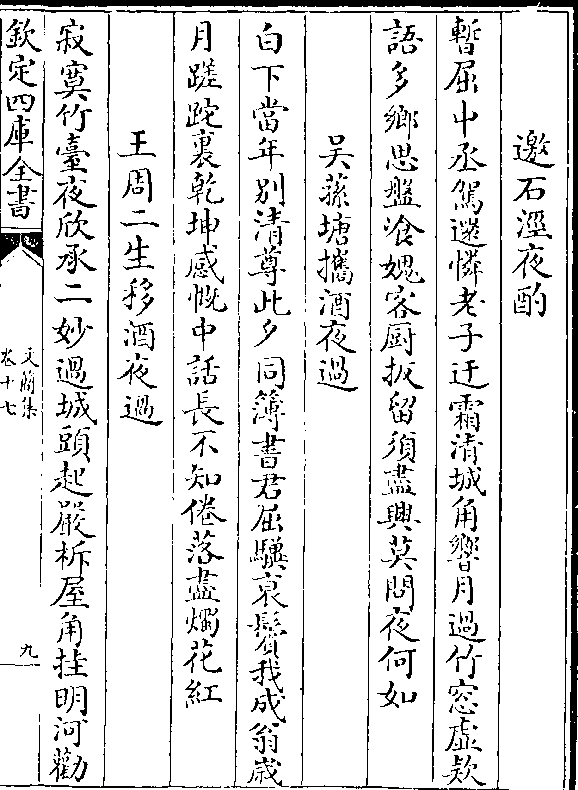 邀石涇夜酌
暫屈中丞駕還憐老子迂霜清城角響月過竹窓虛欵
語多鄉思盤飡媿客厨扳留須盡興莫問夜何如
吴蓀塘攜酒夜過
白下當年别清尊此夕同簿書君屈驥衰鬢我成翁歳
月蹉跎裏乾坤感慨中話長不知倦落盡燭花紅
王周二生移酒夜過
寂寞竹臺夜欣承二妙過城頭起嚴柝屋角挂明河勸
欽定四庫全書
文簡集
卷十七
九